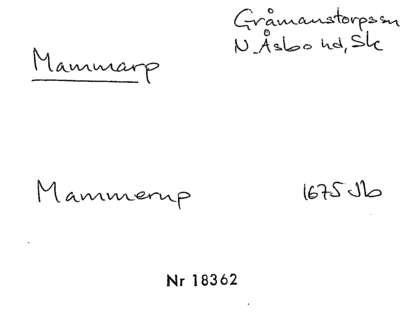 Gråmanstorpssn
N. Åsbo hd, Sk
Mammarp
Mammerup 1675 Jb
Nr 18362